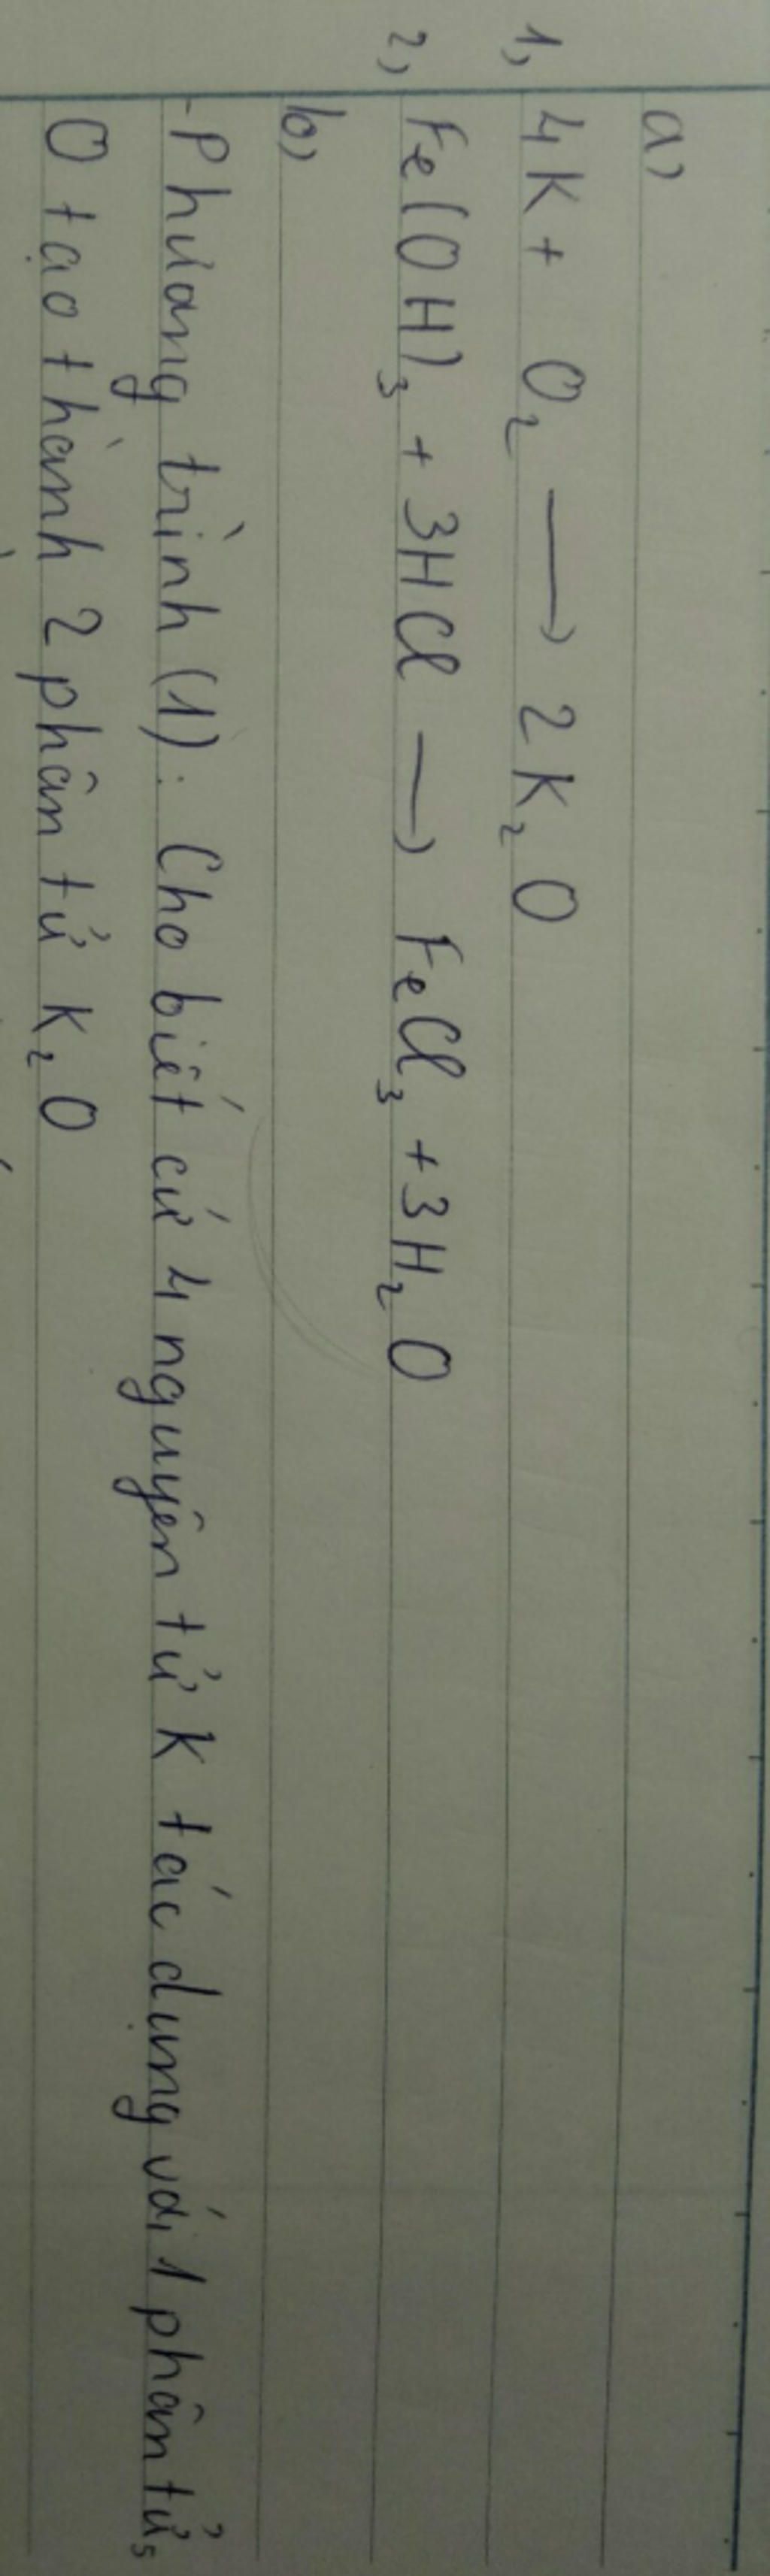 a)
1, 4K + O₂ → 2K₂O
2, Fe(OH)₃ + 3HCl → FeCl₃ + 3H₂O
b)
- Phương trình (1): Cho biết cứ 4 nguyên tử K tác dụng với 1 phân tử
O tạo thành 2 phân tử K₂O